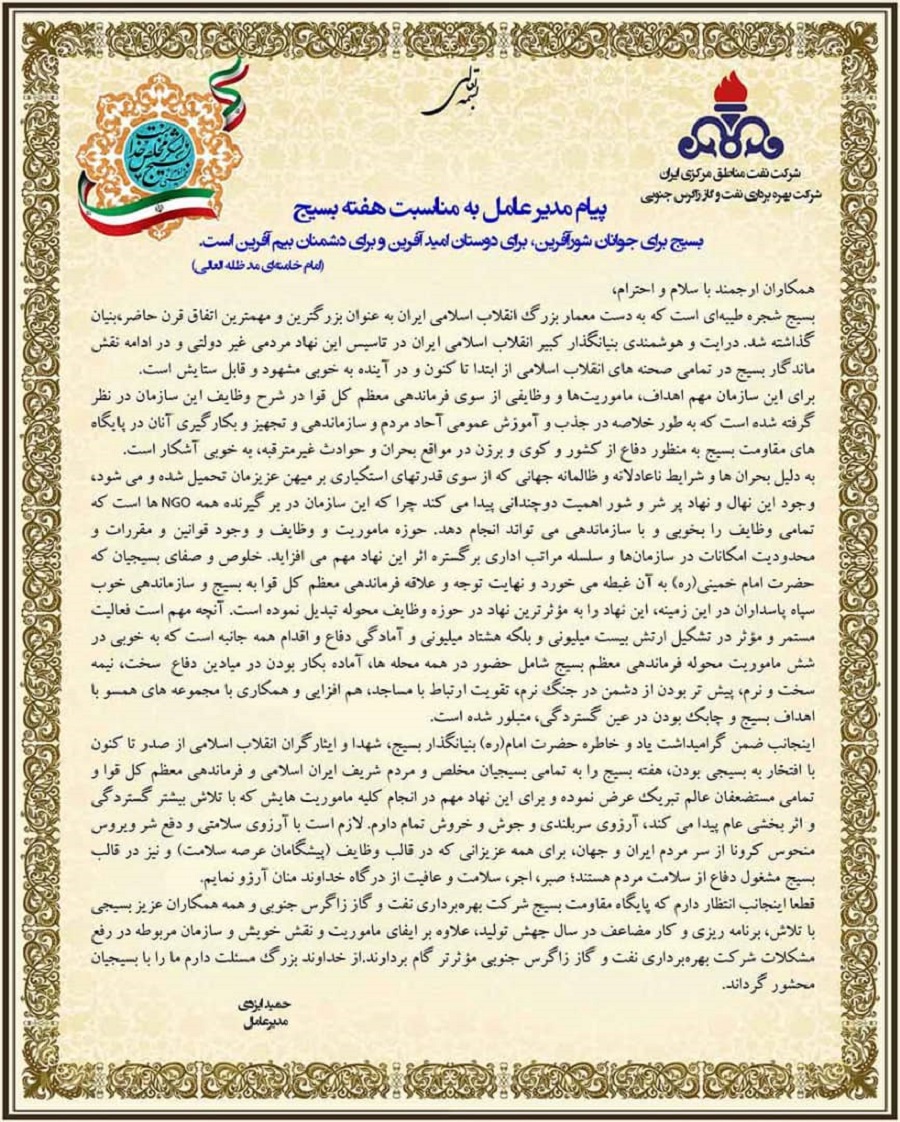 بسمه تعالی
شرکت نفت مناطق مرکزی ایران
شرکت بهره برداری نفت و گاز زاگرس جنوبی
بسیج لشکر مخلص خداست
امام خمینی
پیام مدیر عامل به مناسبت هفته بسیج
بسیج برای جوانان شورآفرین، برای دوستان امید آفرین و برای دشمنان بیم آفرین است.
(امام خامنه‌ای مد ظله العالی)
همکاران ارجمند با سلام و احترام،
بسیج شجره طیبه‌ای است که به دست معمار بزرگ انقلاب اسلامی ایران به عنوان بزرگترین و مهمترین اتفاق قرن حاضر،بنیان
گذاشته شد. درایت و هوشمندی بنیانگذار کبیر انقلاب اسلامی ایران در تاسیس این نهاد مردمی غیر دولتی و در ادامه نقش
ماندگار بسیج در تمامی صحنه های انقلاب اسلامی از ابتدا تا کنون و در آینده به خوبی مشهود و قابل ستایش است.
برای این سازمان مهم اهداف، ماموریت‌ها و وظایفی از سوی فرماندهی معظم کل قوا در شرح وظایف این سازمان در نظر
گرفته شده است که به طور خلاصه در جذب و آموزش عمومی آحاد مردم و سازماندهی و تجهیز و بکارگیری آنان در پایگاه
های مقاومت بسیج به منظور دفاع از کشور و کوی و برزن در مواقع بحران و حوادث غیرمترقبه، به خوبی آشکار است.
به دلیل بحران ها و شرایط ناعادلانه و ظالمانه جهانی که از سوی قدرتهای استکباری بر میهن عزیزمان تحمیل شده و می شود،
وجود این نهال و نهاد پر شر و شور اهمیت دوچندانی پیدا می کند چرا که این سازمان در بر گیرنده همه NGO ها است که
تمامی وظایف را بخوبی و با سازماندهی می تواند انجام دهد. حوزه ماموریت و وظایف و وجود قوانین و مقررات و
محدودیت امکانات در سازمان‌ها و سلسله مراتب اداری بر گستره اثر این نهاد مهم می افزاید. خلوص و صفای بسیجیان که
حضرت امام خمینی(ره) به آن غبطه می خورد و نهایت توجه و علاقه فرماندهی معظم کل قوا به بسیج و سازماندهی خوب
سپاه پاسداران در این زمینه، این نهاد را به مؤثرترین نهاد در حوزه وظایف محوله تبدیل نموده است. آنچه مهم است فعالیت
مستمر و مؤثر در تشکیل ارتش بیست میلیونی و بلکه هشتاد میلیونی و آمادگی دفاع و اقدام همه جانبه است که به خوبی در
شش ماموریت محوله فرماندهی معظم بسیج شامل حضور در همه محله ها، آماده بکار بودن در میادین دفاع سخت، نیمه
سخت و نرم، پیش تر بودن از دشمن در جنگ نرم، تقویت ارتباط با مساجد، هم افزایی و همکاری با مجموعه های همسو با
اهداف بسیج و چابک بودن در عین گستردگی، متبلور شده است.
اینجانب ضمن گرامیداشت یاد و خاطره حضرت امام(ره) بنیانگذار بسیج، شهدا و ایثارگران انقلاب اسلامی از صدر تا کنون
با افتخار به بسیجی بودن، هفته بسیج را به تمامی بسیجیان مخلص و مردم شریف ایران اسلامی و فرماندهی معظم کل قوا و
تمامی مستضعفان عالم تبریک عرض نموده و برای این نهاد مهم در انجام کلیه ماموریت هایش که با تلاش بیشتر گستردگی
و اثر بخشی عام پیدا می کند، آرزوی سربلندی و جوش و خروش تمام دارم. لازم است با آرزوی سلامتی و دفع شر ویروس
منحوس کرونا از سر مردم ایران و جهان، برای همه عزیزانی که در قالب وظایف (پیشگامان عرصه سلامت) و نیز در قالب
بسیج مشغول دفاع از سلامت مردم هستند؛ صبر، اجر، سلامت و عافیت از درگاه خداوند منان آرزو نمایم.
قطعا اینجانب انتظار دارم که پایگاه مقاومت بسیج شرکت بهره‌برداری نفت و گاز زاگرس جنوبی و همه همکاران عزیز بسیجی
با تلاش، برنامه ریزی و کار مضاعف در سال جهش تولید، علاوه بر ایفای ماموریت و نقش خویش و سازمان مربوطه در رفع
مشکلات شرکت بهره‌برداری نفت و گاز زاگرس جنوبی مؤثرتر گام بردارند.از خداوند بزرگ مسئلت دارم ما را با بسیجیان
محشور گرداند.
حمید ایزدی
مدیرعامل